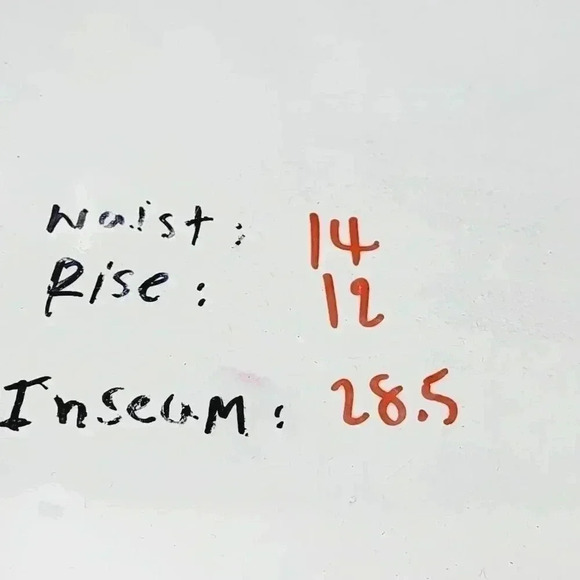 Waist: 14
Rise: 12
Inseam: 28.5